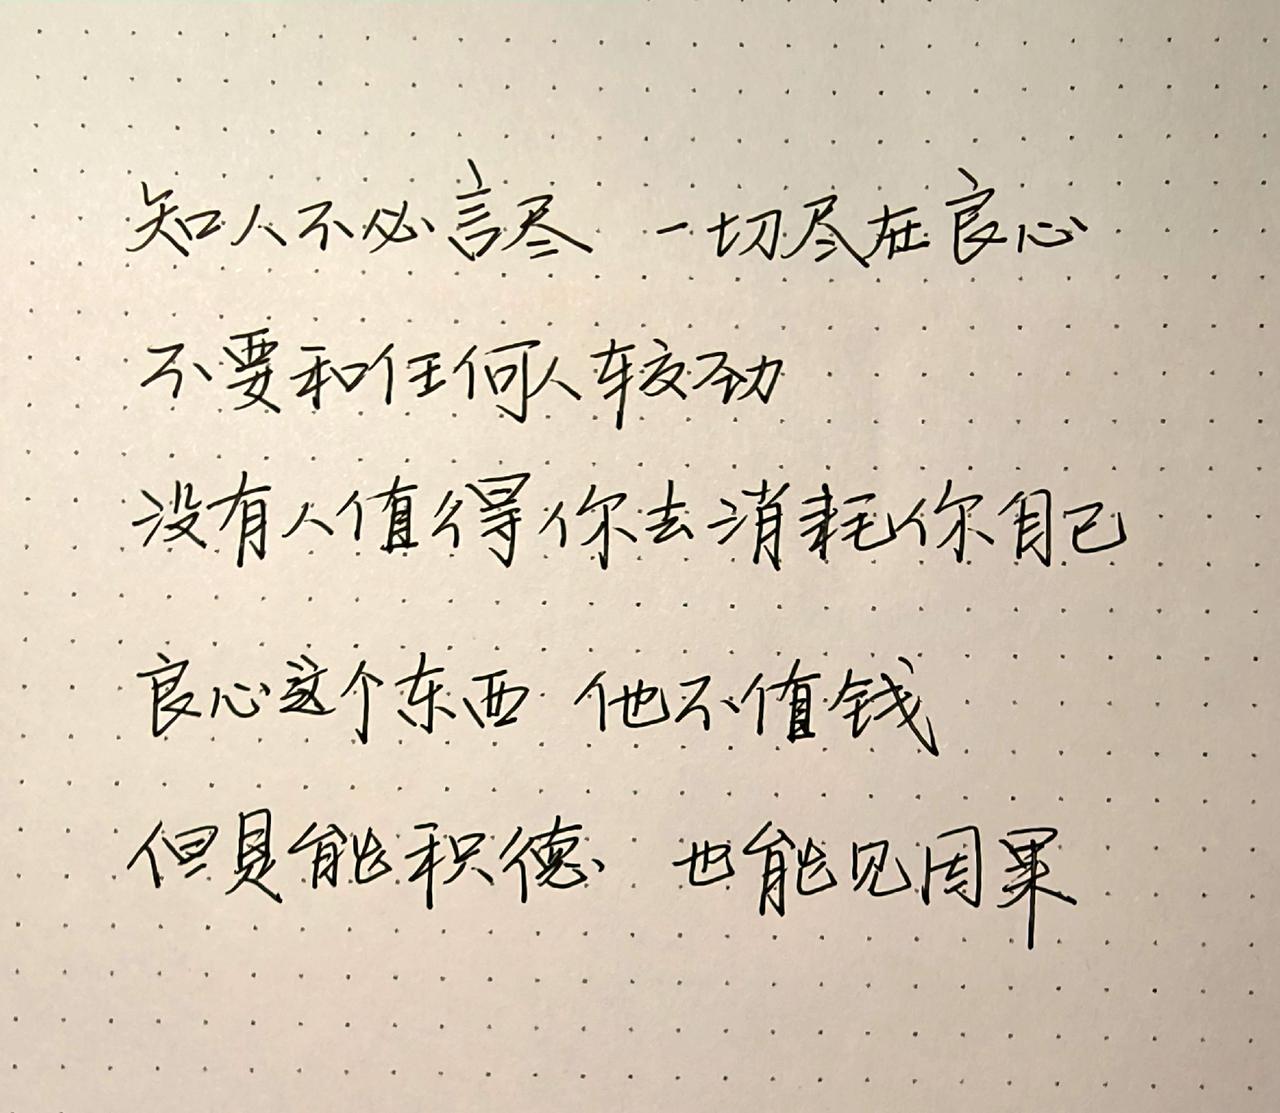 知人不必言尽 一切尽在良心
不要和任何人较劲
没有人值得你去消耗你自己
良心这个东西 他不值钱
但是能积德 也能见因果